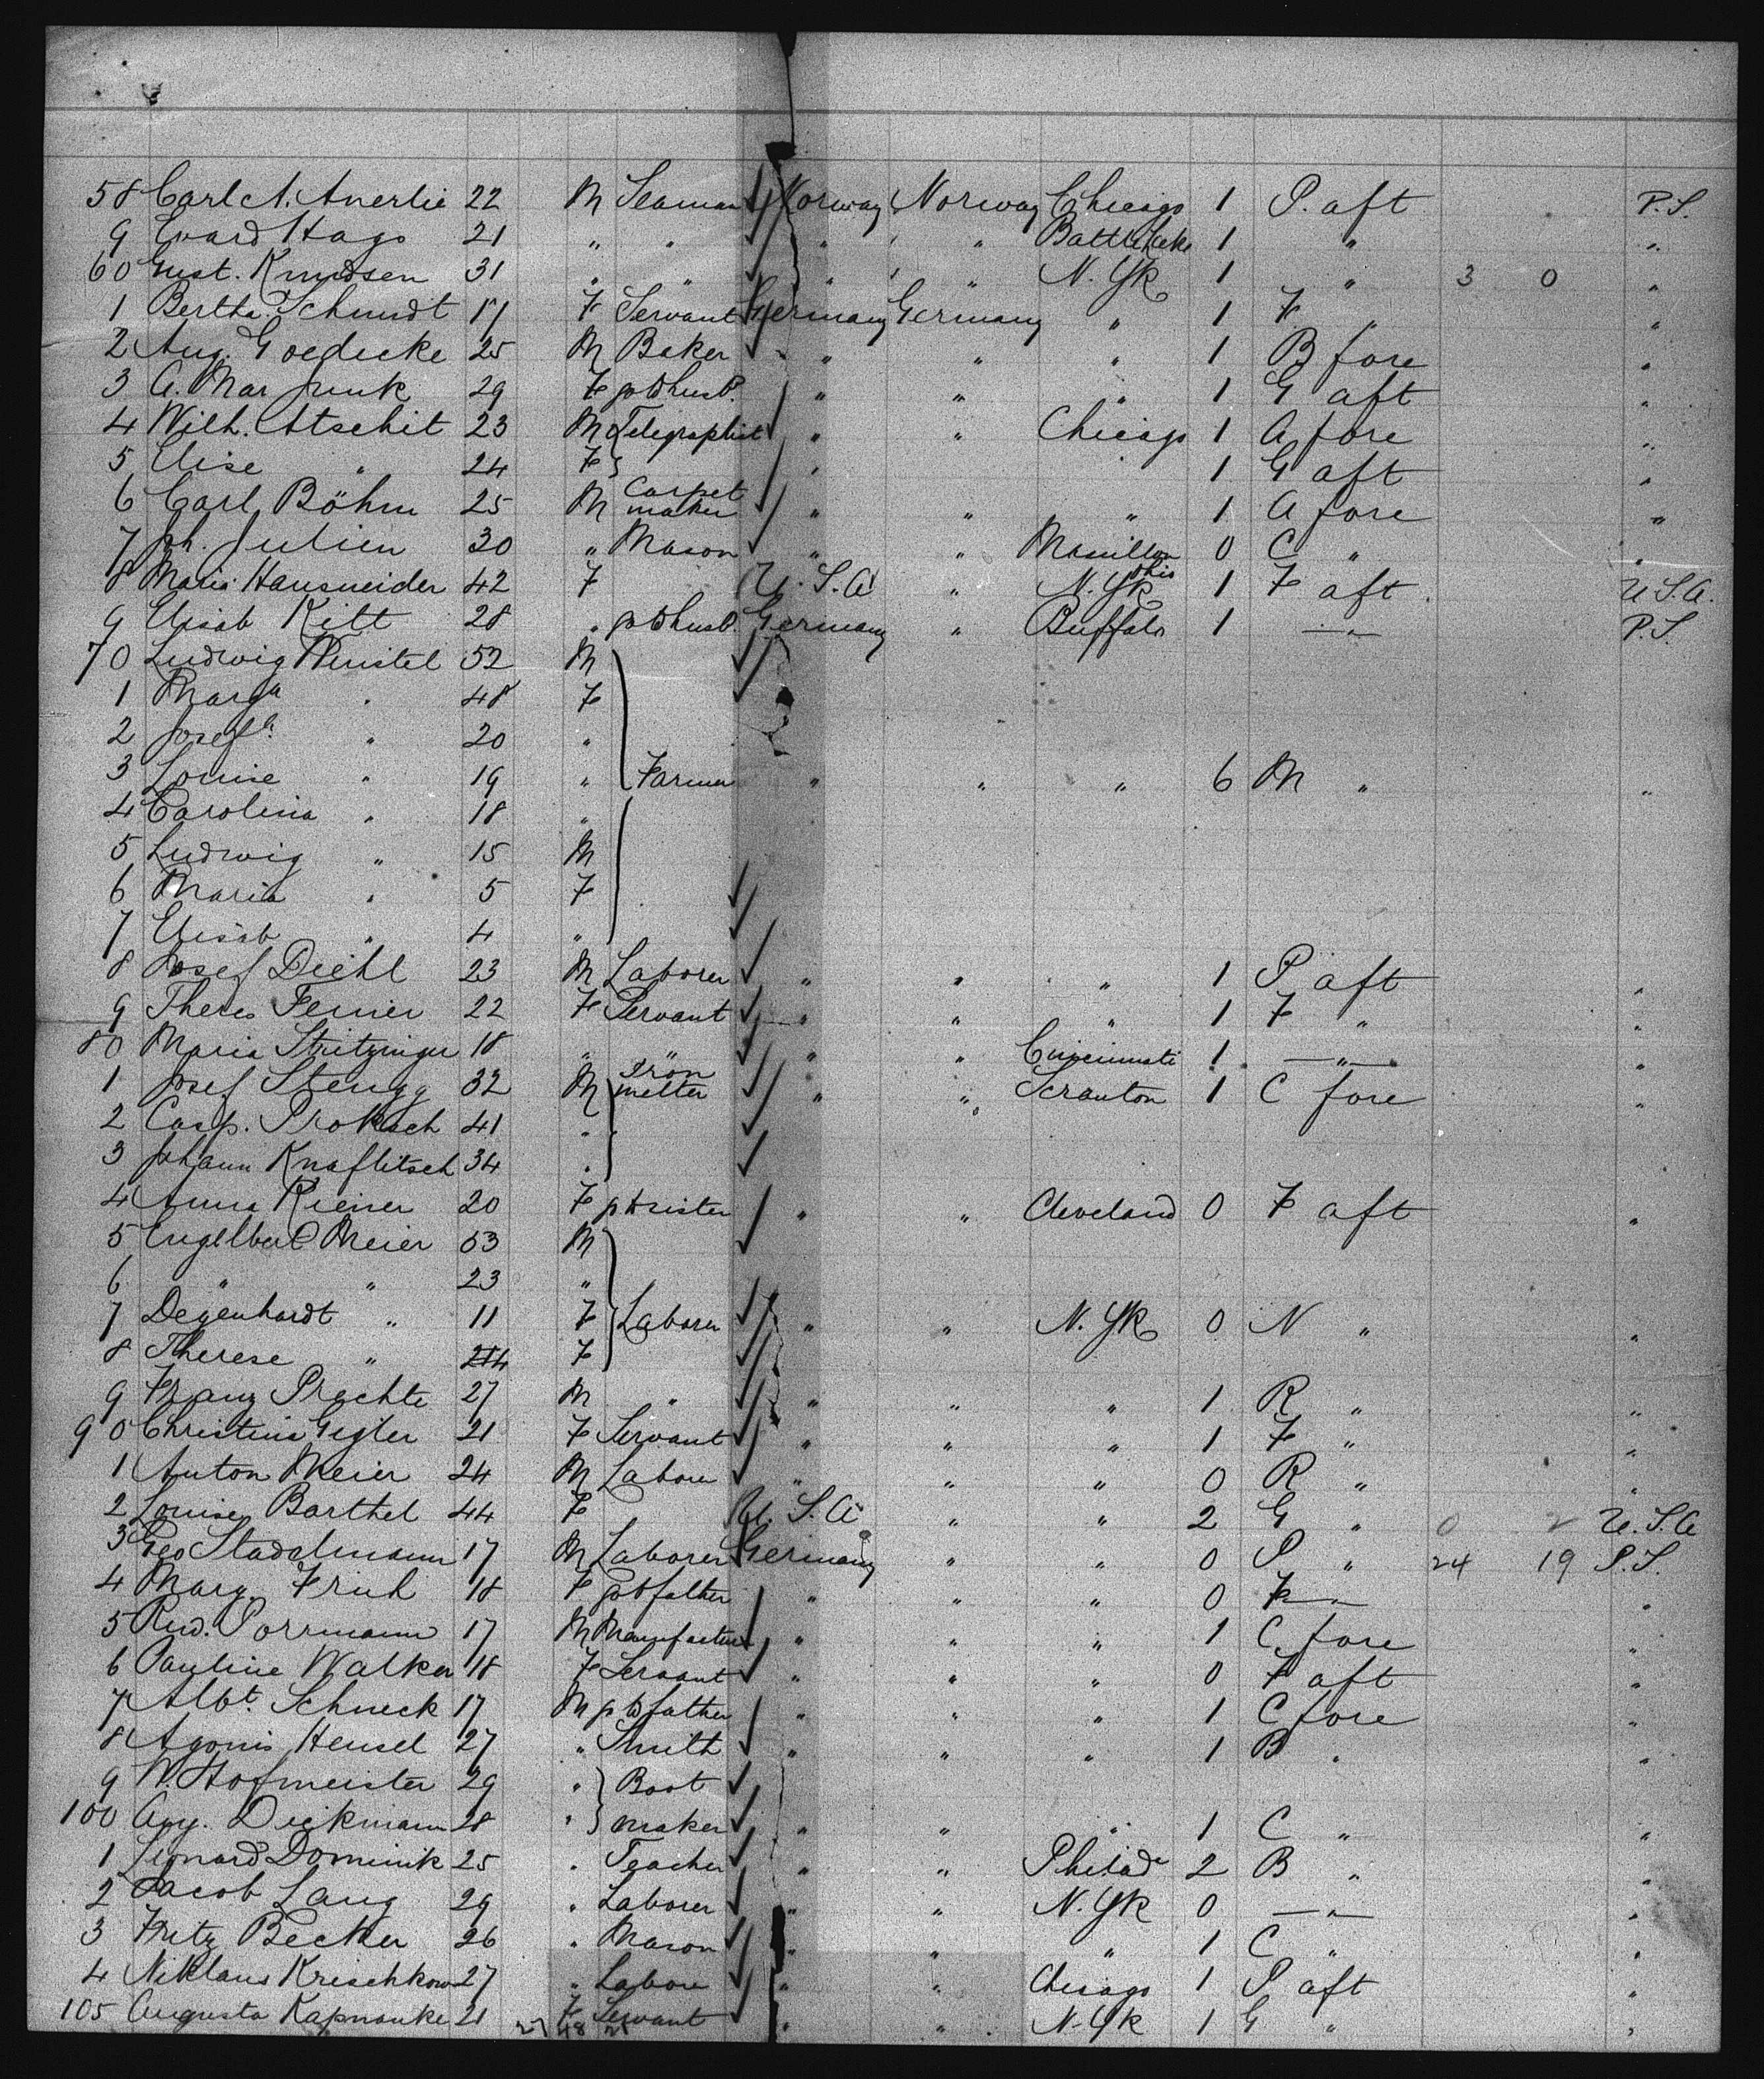 58 Carl A. Anerlie 22 M Seaman Norway Norway Chicago 1 P. aft P.S.
9 Evard Hago 21 " " " " Battle Lake 1 " "
60 Gust. Knudsen 31 " " " " N. Yk 1 " 3 0 "
1 Bertha Schmidt 17 F Servant Germany Germany " 1 F " "
2 Aug. Goedicke 25 M Baker " " " 1 B fore "
3 A. Mar Junk 29 F to husb. " " " 1 G aft "
4 Wilh. Atschit 23 M Telegraphist " " Chicago 1 A fore "
5 Elise " 24 F " 1 G aft "
6 Carl Böhm 25 M Carpet maker " " " 1 A fore "
7 Joh. Julien 30 " Mason " " Massillon Ohio 0 C " "
8 Maria Hausneider 42 F U.S.A " N. Yk 1 F aft U.S.A.
9 Elisab Kilt 28 " to husb. Germany " Buffalo 1 —"— P.S.
70 Ludwig 52 M
1 Marg a " 48 F
2 Josef a " 20 "
3 Louise " 19 " Farmer " " " 6 M " "
4 Carolina " 18 "
5 Ludwig " 15 M
6 Maria " 5 F
7 Elisab " 4 "
8 Josef Diehl 23 M Laborer " " " 1 P aft "
9 Theres Ferrier 22 F Servant " " " 1 F " "
80 Maria Stritzinger 18 " " " " Cincinnati 1 —"—
1 Josef Stengg 32 M Iron melter " " Scranton 1 C fore "
2 Casp. Proksch 41 "
3 Johann Knaflitsch 34 "
4 Anna Riener 20 F to sister " " Cleveland 0 F aft "
5 Engelbert Meier 53 M
6 " " 23 "
7 Degenhardt " 11 F Laborer " " N. Yk 0 N " "
8 Therese " 4 F
9 Franz Prechtl 27 M " " " " 1 R " "
90 Christina Gegler 21 F Servant " " " 1 F " "
1 Anton Meier 24 M Laborer " " " 0 R " "
2 Louise Barthel 44 F U.S.A " " 2 G " 0 U.S.A
3 Geo Stadelmann 17 M Laborer Germany " " 0 P " 24 19 P.S.
4 Marg. Früh 18 F to father " " " 0 F —"— "
5 Rud. Porrmann 17 M Manufactur " " " 1 C fore "
6 Pauline Walker 18 F Servant " " " 0 F aft "
7 Albt. Schneck 17 M to father " " " 1 C fore "
8 Agonis Hensel 27 " Smith " " " 1 B " "
9 W. Hofmeister 29 " Boot
100 Aug. Dickmann 28 " maker " " " 1 C " "
1 Leonard Dominik 25 " Teacher " " Philad a 2 B " "
2 Jacob Lang 29 " Laborer " " N. Yk 0 —"— "
3 Fritz Becker 26 " Mason " " " 1 C " "
4 Niklaus Krischkow 27 " Labore " " Chicago 1 P aft "
105 Augusta Kapnauke 21 F Servant " " N. Yk 1 G " "
27 48 28